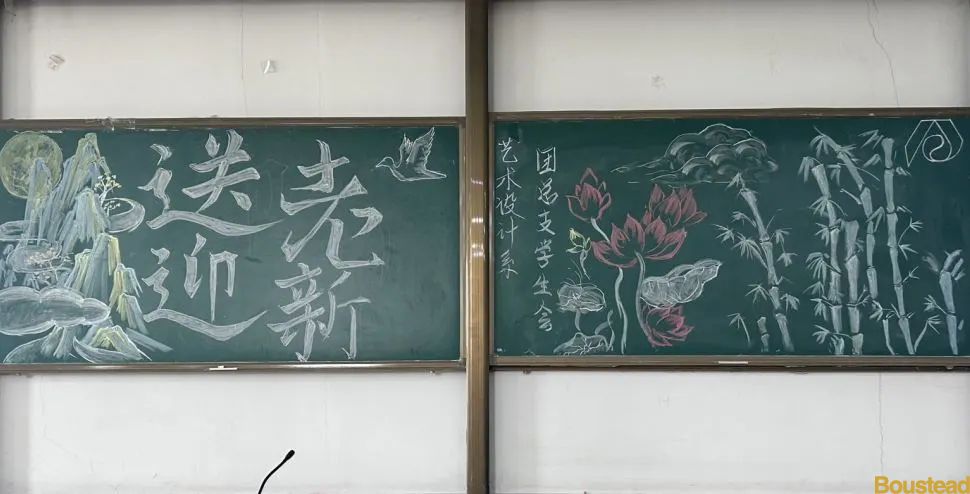 送老
迎新
艺术设计系
团总支学生会
Boustead